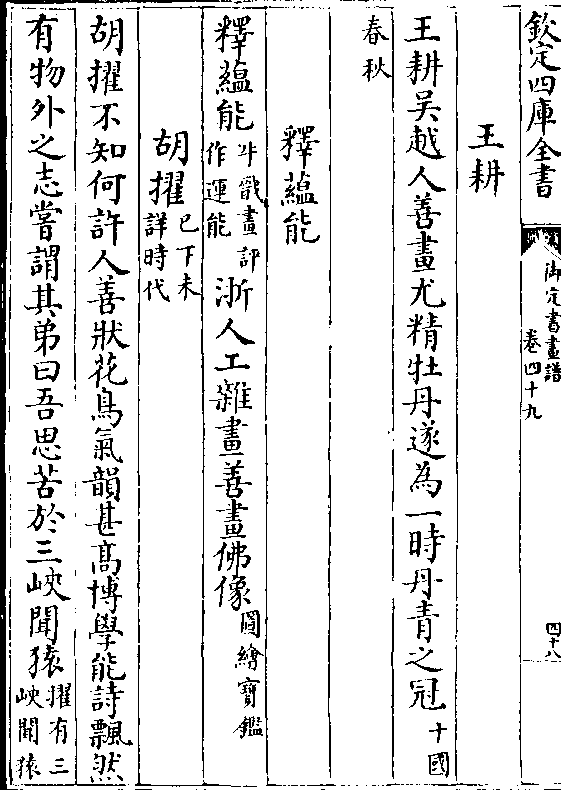 欽定四庫全書
御定書畫譜
卷四十九
四十八
王耕
王耕吳越人善畫尤精牡丹遂為一時丹青之冠十國
春秋
釋蘊能
釋蘊能
畫評
作運能
浙人工雜畫善畫佛像圖繪寶鑑
胡擢已下未
詳時代
胡擢不知何許人善狀花鳥氣韻甚髙博學能詩飄然
有物外之志嘗謂其弟曰吾思苦於三峽聞猿擢有三
峽聞猿